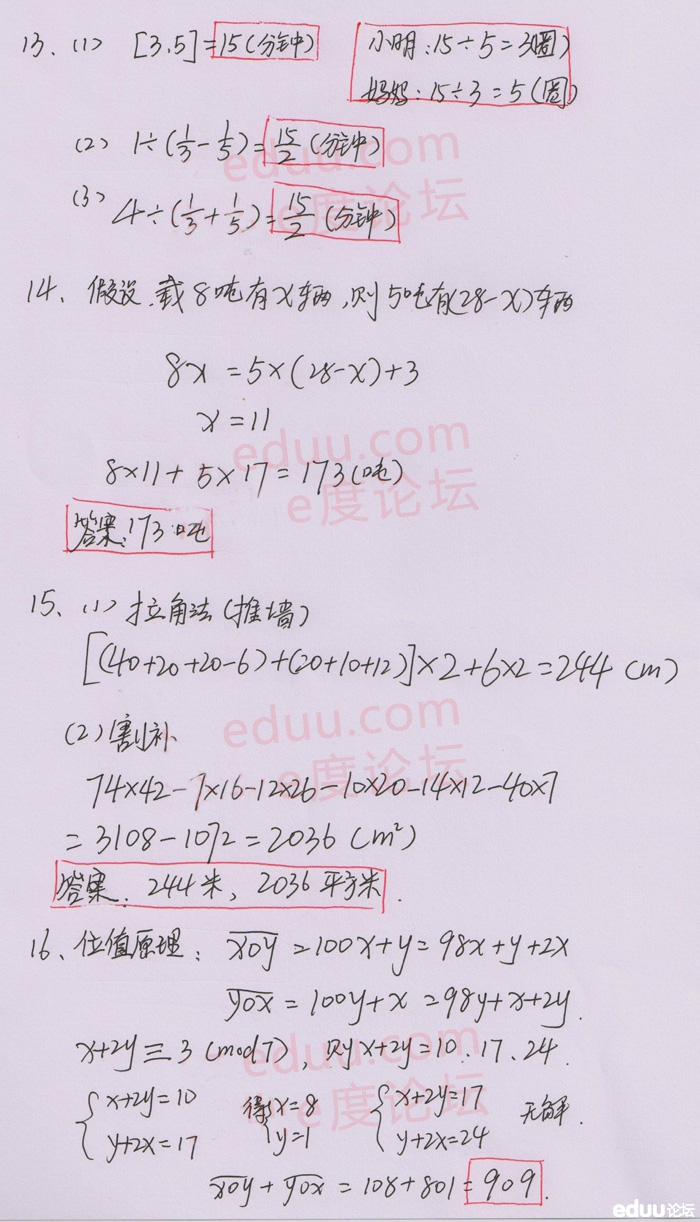 13、(1) [3,5]=15(分钟)
小明:15÷5=3(圈)
妈妈:15÷3=5(圈)
(2) 1÷(1/3-1/5)=15/2(分钟)
(3) 4÷(1/3+1/5)=15/2(分钟)
14、假设、载8吨有x车辆,则5吨有(28-x)车辆
8x=5×(28-x)+3
x=11
8×11+5×17=173(吨)
答案:173吨
15、(1)拉角法(推墙)
[(40+20+20-6)+(20+10+12)]×2+6×2=244(m)
(2)割补
74×42-7×16-12×26-10×20-14×12-40×7
=3108-1072=2036(m²)
答案:244米,2036平方米.
16、位值原理:x0y=100x+y=98x+y+2x
y0x=100y+x=98y+x+2y.
x+2y≡3(mod7),则x+2y=10.17.24.
{x+2y=10 得{x=8 {x+2y=17 无解.
y+2x=17 y=1 y+2x=24
x0y+y0x=108+801=909.
eduu.com
e度论坛
eduu.com
e度论坛
eduu.com
e度论坛
eduu.com
e度论坛
eduu论坛